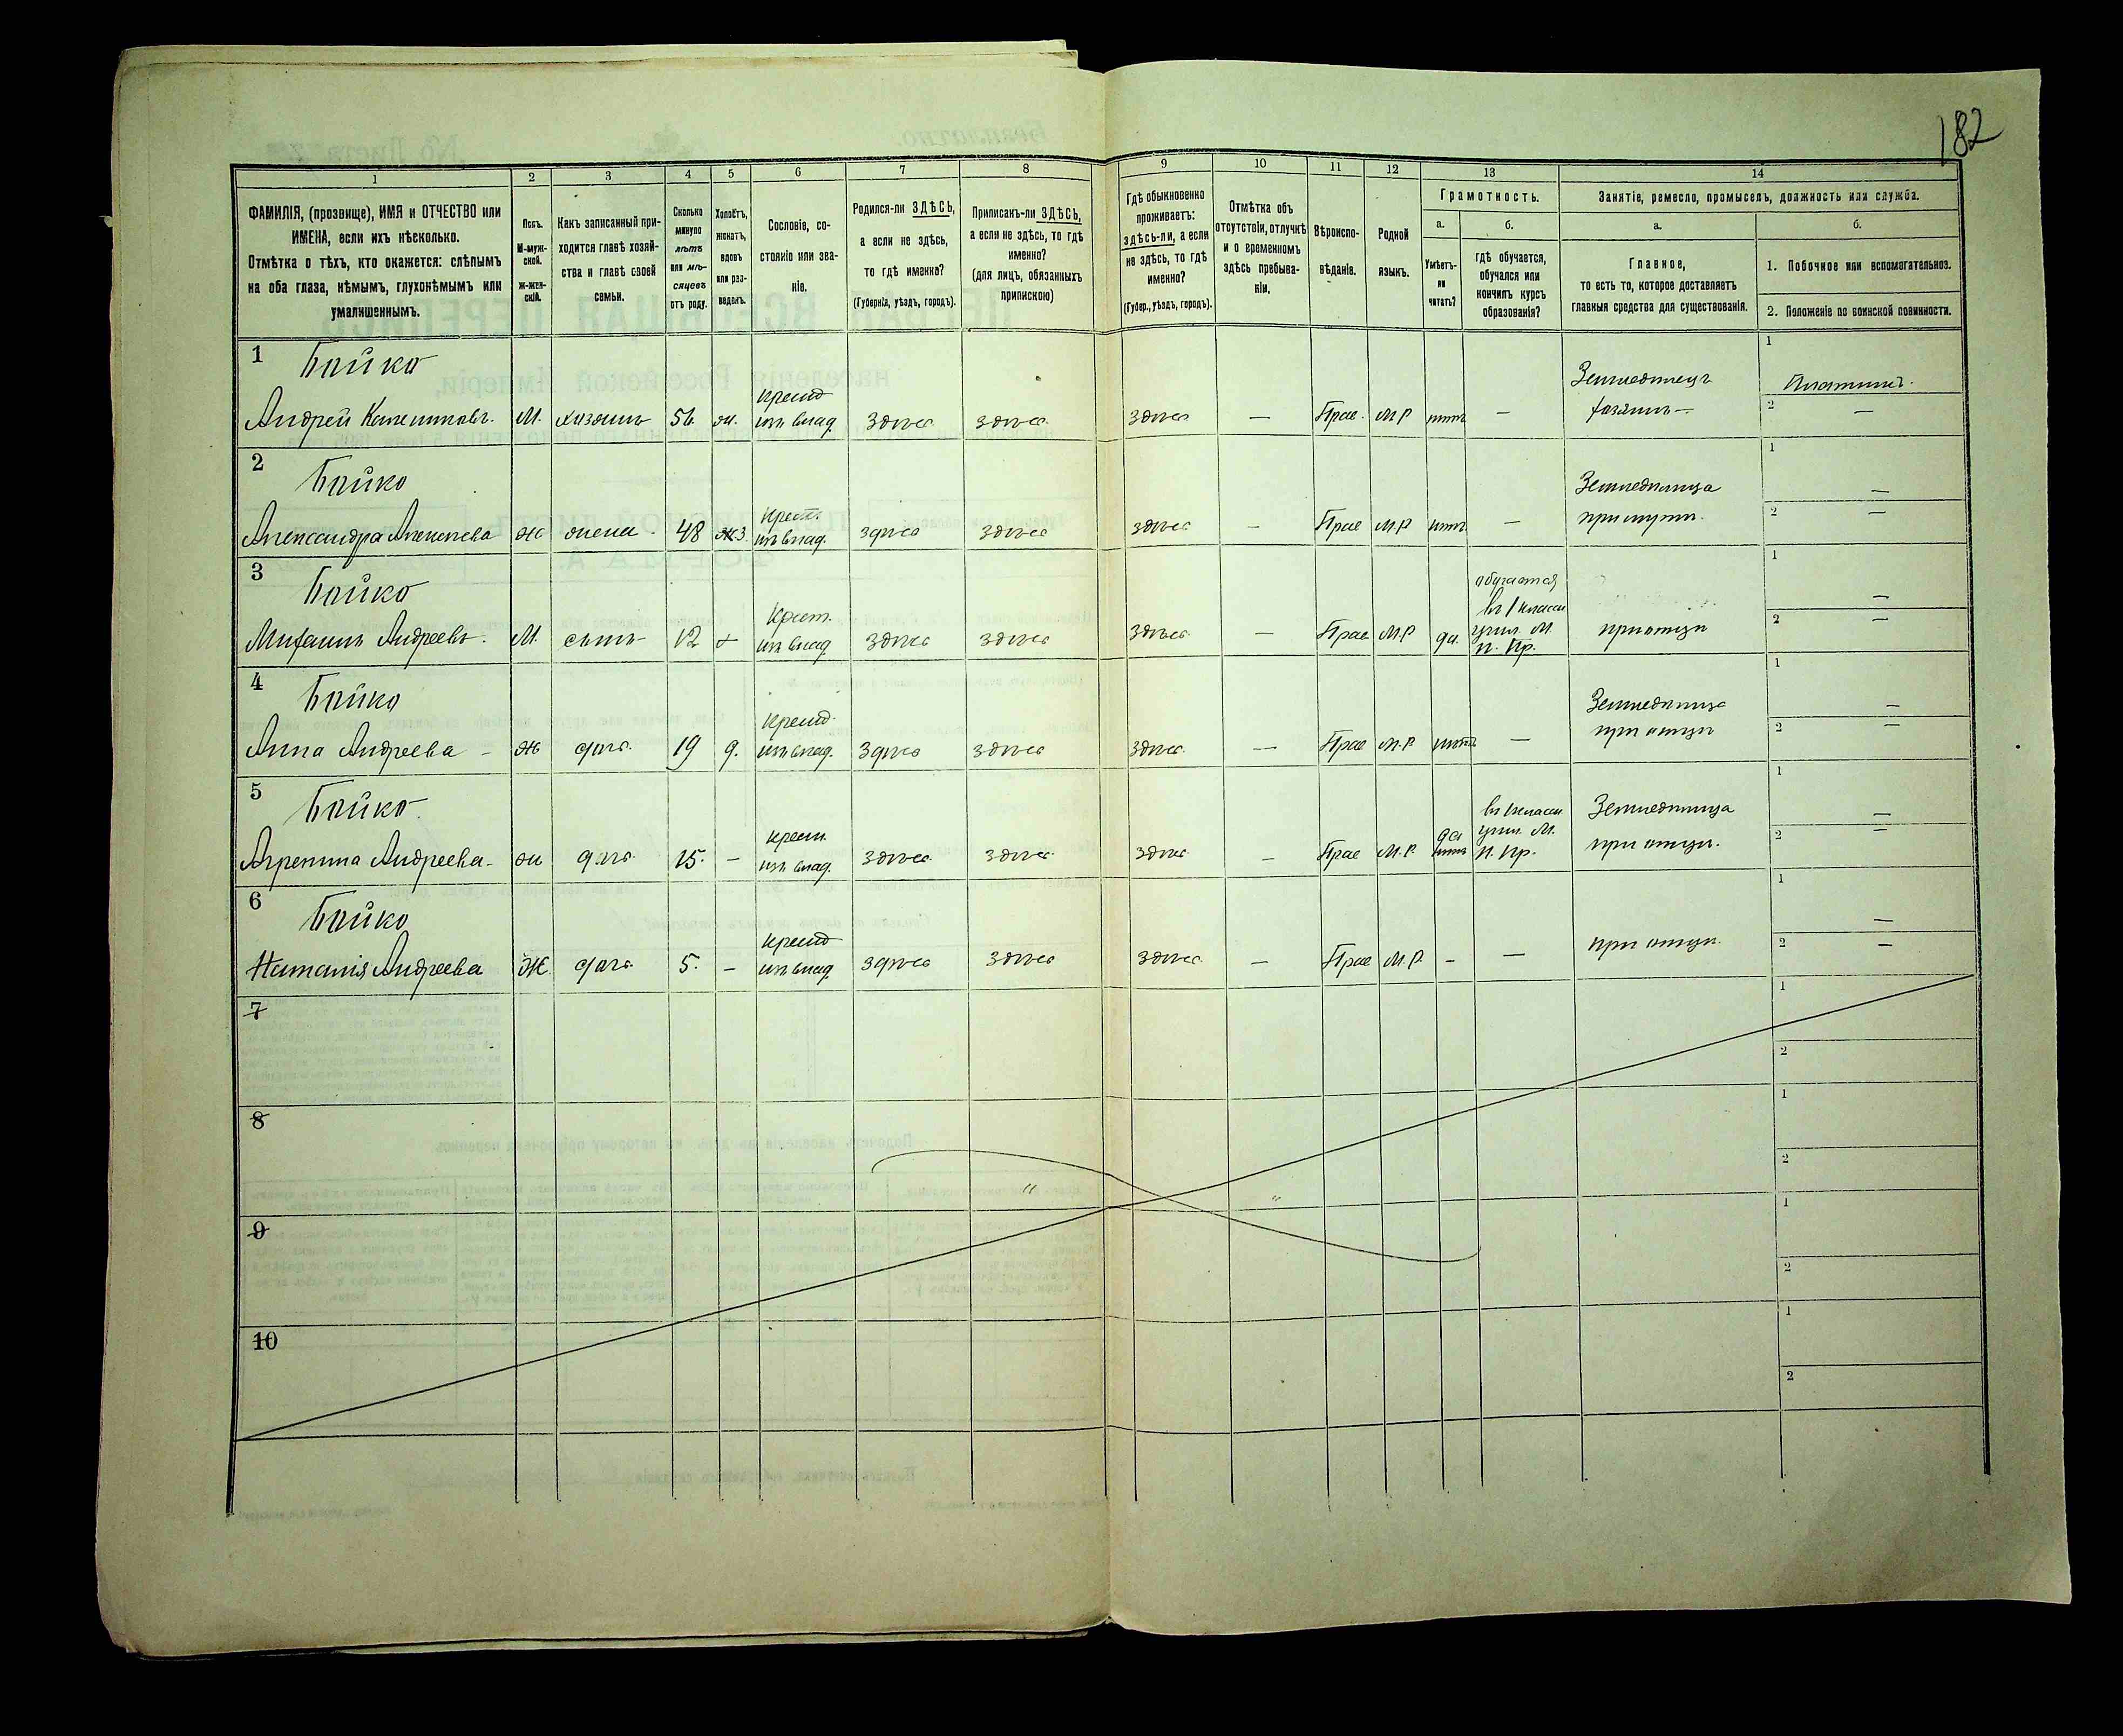 182
1 2 3 4 5 6 7 8 9 10 11 12 13 14
ФАМИЛІЯ, (прозвище), ИМЯ и ОТЧЕСТВО или
ИМЕНА, если ихъ нѣсколько.
Отмѣтка о тѣхъ, кто окажется: слѣпымъ
на оба глаза, нѣмымъ, глухонѣмымъ или
умалишеннымъ.
Полъ.
М-муж-
ской.
Ж-жен-
скій.
Какъ записанный при-
ходится главѣ хозяй-
ства и главѣ своей
семьи.
Сколько
минуло
лѣтъ
или мѣ-
сяцевъ
отъ роду.
Холостъ,
женатъ,
вдовъ
или раз-
веденъ.
Сословіе, со-
стояніе или зва-
ніе.
Родился-ли ЗДѢСЬ,
а если не здѣсь,
то гдѣ именно?
(Губернія, уѣздъ, городъ).
Приписанъ-ли ЗДѢСЬ,
а если не здѣсь, то гдѣ
именно?
(для лицъ, обязанныхъ
припискою)
Гдѣ обыкновенно
проживаетъ:
здѣсь-ли, а если
не здѣсь, то гдѣ
именно?
(Губер., уѣздъ, городъ).
Отмѣтка объ
отсутствіи, отлучкѣ
и о временномъ
здѣсь пребыва-
ніи.
Вѣроиспо-
вѣданіе.
Родной
языкъ.
Грамотность.
а.
Умѣетъ-
ли
читать?
б.
гдѣ обучается,
обучался или
кончилъ курсъ
образованія?
Занятіе, ремесло, промыселъ, должность или служба.
а.
Главное,
то есть то, которое доставляетъ
главныя средства для существованія.
б.
1. Побочное или вспомогательное.
2. Положеніе по воинской повинности.
1 Бойко
Андрей М. хозяинъ 56 ж. крест. изъ влад. здѣсь здѣсь здѣсь — Прав. М.Р нѣтъ — Земледѣлецъ хозяинъ — 1 Плотникъ. 2 —
2 Бойко
Александра Алексѣева ж жена 48 з. крест. изъ влад. здѣсь здѣсь здѣсь — Прав М.Р нѣтъ — Земледѣлица при мужѣ. 1 — 2 —
3 Бойко
Михаилъ Андреевъ. М. сынъ 12 Крест. изъ влад. здѣсь здѣсь здѣсь — Прав М.Р да. обучается въ 1 классн учил. М. Н. Пр. при отцѣ 1 — 2 —
4 Бойко
Анна Андреева — ж дочь. 19 д. крест. изъ влад. здѣсь здѣсь здѣсь — Прав М.Р. нѣтъ — Земледѣлица при отцѣ 1 — 2 —
5 Бойко
Агрепина Андреева ж дочь. 15. — крест. изъ влад. здѣсь здѣсь здѣсь — Прав М.Р. да нѣтъ въ 1 классн учил. М. Н. Пр. Земледѣлица при отцѣ. 1 — 2 —
6 Бойко
Наталія Андреева Ж. дочь. 5. — крест. изъ влад. здѣсь здѣсь здѣсь — Прав М.Р. — — при отцѣ. 1 — 2 —
7 1 2
8 1 2
9 1 2
10 1 2